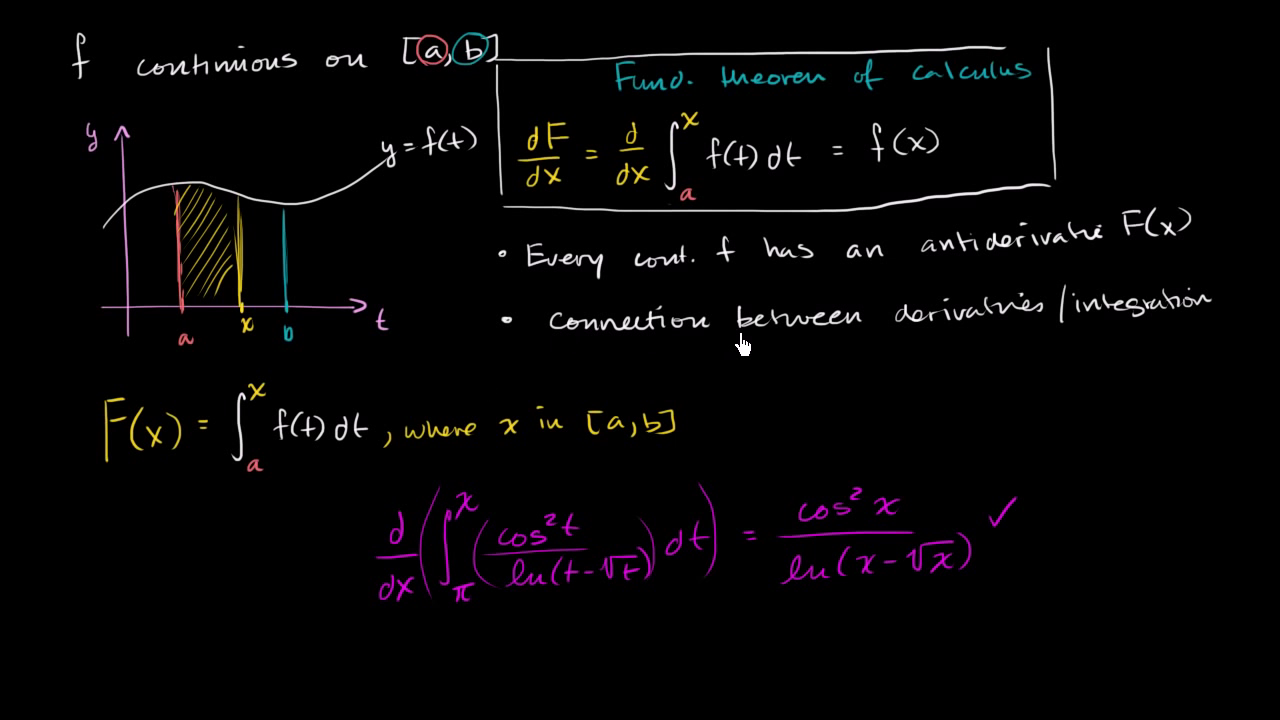 f continuous on [a, b]
Fund. theorem of calculus
dF/dx = d/dx ∫_a^x f(t) dt = f(x)
y
y = f(t)
a x b t
• Every cont. f has an antiderivative F(x)
• connection between derivatives/integration
F(x) = ∫_a^x f(t) dt, where x in [a,b]
d/dx (∫_π^x (cos²t / ln(t-√t)) dt) = cos²x / ln(x-√x) ✓